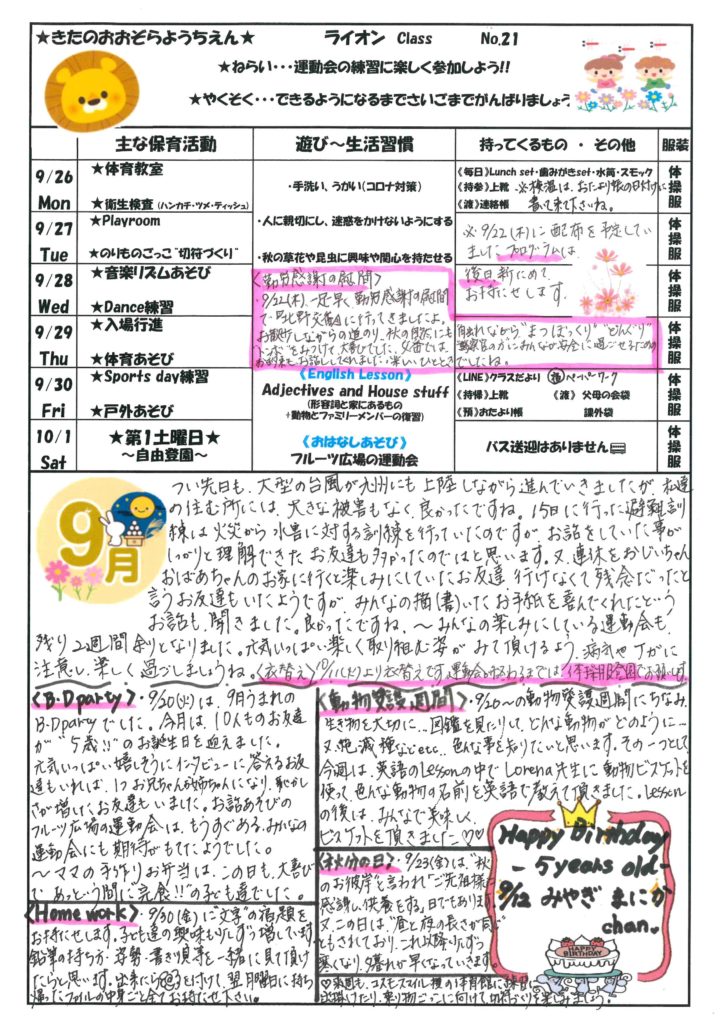 ★きたのおおぞらようちえん★ ライオン Class No.21
★ねらい・・・運動会の練習に楽しく参加しよう!!
★やくそく・・・できるようになるまでさいごまでがんばりましょう
主な保育活動 遊び～生活習慣 持ってくるもの ・ その他 服装
9/26 Mon
★体育教室
★衛生検査 (ハンカチ・ツメ・ティッシュ)
・手洗い、うがい(コロナ対策)
《毎日》Lunch set・歯みがきset・水筒・スモック
《持参》上靴 ※検温は、おたより帳の日付けに
《渡》連絡帳 書いて来て下さいね。
体操服
9/27 Tue
★Playroom
★のりものごっこ"切符づくり"
・人に親切にし、迷惑をかけないようにする
・秋の草花や昆虫に興味や関心を持たせる
※9/22(木)に配布を予定してい
ましたプログラムは、
後日新ためて、
お持たせします。
体操服
9/28 Wed
★音楽リズムあそび
★Dance練習
体操服
9/29 Thu
★入場行進
★体育あそび
体操服
〈勤労感謝の慰問〉
・9/22(木)、一足早く勤労感謝の慰問
で、
に行ってきましたよ。
お散歩しながらの道のり、秋の
トンボをみつけて大喜びでした。
お話してくれました。楽しいひととき
触れながら"まつぼっくり""どんぐり"
でしたね。
9/30 Fri
★Sports day練習
★戸外あそび
《English Lesson》
Adjectives and House stuff
(形容詞と家にあるもの
+動物とファミリーメンバーの復習)
《LINE》クラスだより ペーパーワーク
《持帰》上靴 《渡》 父母の会袋
《預》おたより帳 課外袋
体操服
10/1 Sat
★第1土曜日★
～自由登園～
《おはなしあそび》
フルーツ広場の運動会
バス送迎はありません
体操服
9月
つい先日も、大型の台風が九州にも上陸しながら進んでいきましたが、私達
の住む所には、大きな被害もなく、良かったですね。15日に行った避難訓
練は火災から水害に対する訓練を行っていたのですが、お話をしていた事が
しっかりと理解できたお友達も多かったのではと思います。又、連休をおじいちゃん
おばあちゃんのお家に行くと楽しみにしていたお友達、行けなくて残念だったと
言うお友達もいたようですが、みんなの描(書)いたお手紙を喜んでくれたという
お話も、聞きました。良かったですね。～みんなの楽しみにしている運動会も、
残り2週間余りとなりました。元気いっぱい楽しく取り組む姿が みて頂けるよう、病気やケガに
注意し、楽しく過ごしましょうね。〈衣替え〉10/1(土)より衣替えです。運動会が終わるまでは、体操服登園でお願いします。
〈B.D party〉・9/20(火)は、9月うまれの
B.D partyでした。今月は、10人ものお友達
が"5歳!!"のお誕生日を迎えました。
元気いっぱい嬉しそうにインタビューに答えるお友
達もいれば、1つお兄ちゃんお姉ちゃんになり、恥かし
さが増したお友達もいました。お話あそびの
フルーツ広場の運動会は、もうすぐある、みんなの
運動会にも期待がもてたようでした。
～ママの手作りお弁当は、この日も、大喜び
で、あっという間に"完食!!"の子ども達でした。
〈Home work〉・9/30(金)に"文字"の宿題を
お持たせします。子ども達の興味も少しずつ増しています。
鉛筆の持ち方、姿勢、書き順等を一緒に見て頂け
たらと思います。出来たら を付けて、翌月曜日に持ち
帰ったファイルの中身ごと全てお持たせ下さい。
〈動物愛護週間〉・9/20～の動物愛護週間にちなみ、
生き物を大切に…図鑑を見たりして、どんな動物がどのように…
又、絶滅種などetc…色んな事を知りたいと思います。その一つとして
今週は、英語のLessonの中でLorena先生に動物ビスケットを
使って、色んな動物の名前を英語で教えて頂きました。Lesson
の後は、みんなで美味しく、
ビスケットを頂きました♡♡
〈秋分の日〉・9/23(金)は、"秋
のお彼岸"と言われ"ご先祖様に
感謝し、供養をする"日でもあります。
又、この日は"昼と夜の長さが同じ"
ともされており、これ以降、少しずつ
寒くなり、夕暮れが早くなっていきます。
♡来週も、コスモスマイル横の体育館に練習に
出掛けたり、乗り物ごっこに向けて、切符づくりを楽しみましょう。
Happy Birthday
- 5years old -
9/12 みやぎ まにか
chan♥
HAPPY
BIRTHDAY